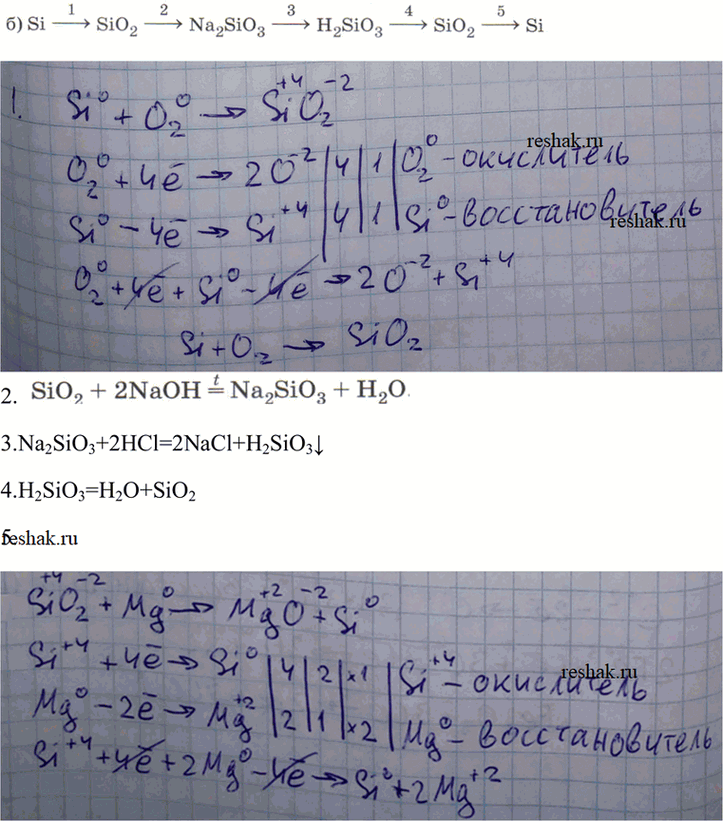 б) Si —1→ SiO₂ —2→ Na₂SiO₃ —3→ H₂SiO₃ —4→ SiO₂ —5→ Si
1. Si⁰ + O₂⁰ → Si⁺⁴O₂⁻²
reshak.ru
O₂⁰ + 4ē → 2O⁻² | 4 | 1 | O₂⁰ - окислитель
Si⁰ - 4ē → Si⁺⁴ | 4 | 1 | Si⁰ - восстановитель
reshak.ru
O₂⁰ + 4ē + Si⁰ - 4ē → 2O⁻² + Si⁺⁴
Si + O₂ → SiO₂
2. SiO₂ + 2NaOH =t= Na₂SiO₃ + H₂O.
3.Na₂SiO₃+2HCl=2NaCl+H₂SiO₃↓
4.H₂SiO₃=H₂O+SiO₂
5.
reshak.ru
Si⁺⁴O₂⁻² + Mg⁰ → Mg⁺²O⁻² + Si⁰
Si⁺⁴ + 4ē → Si⁰ | 4 | 2 | ×1 | Si⁺⁴ - окислитель
reshak.ru
Mg⁰ - 2ē → Mg⁺² | 2 | 1 | ×2 | Mg⁰ - восстановитель
Si⁺⁴ + 4ē + 2Mg⁰ - 4ē → Si⁰ + 2Mg⁺²